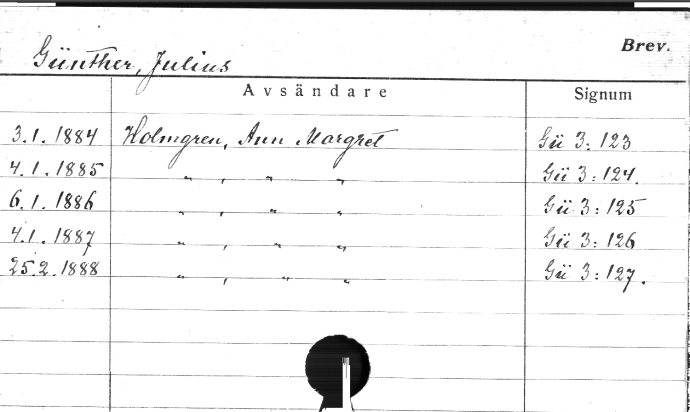 Günther, Julius
Brev.
Avsändare Signum
3.1.1884 Holmgren, Ann Margret Gü 3:123
4.1.1885 " , " " Gü 3:124.
6.1.1886 " , " " Gü 3:125
4.1.1887 " , " " Gü 3:126
25.2.1888 " , " " Gü 3:127.